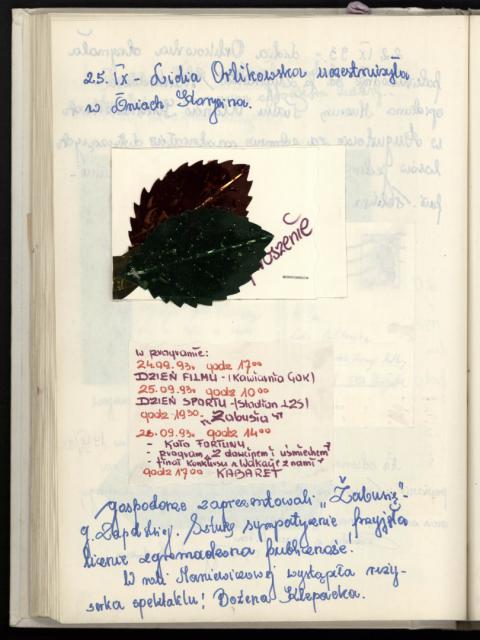 25.IX - Lidia Orlikowska uczestniczyła
w Dniach Starzyna.
proszenie
w programie:
24.09.93r. godz 17⁰⁰
DZIEŃ FILMU - (Kawiarnia GOK)
25.09.93r. godz 10⁰⁰
DZIEŃ SPORTU - (Stadion LZS)
godz. 19³⁰. "Żabusia"
26.09.93r. godz 14⁰⁰
- KOŁO FORTUNY,
- program "Z dowcipem i uśmiechem"
- finał konkursu "Wakacje z nami"
godz 17⁰⁰ KABARET
Gospodarze zaprezentowali "Żabusię" -
G. Zapolskiej. Sztukę sympatycznie przyjęła
licznie zgromadzona publiczność.
W roli Maniewiczowej wystąpiła reży-
serka spektaklu! Bożena